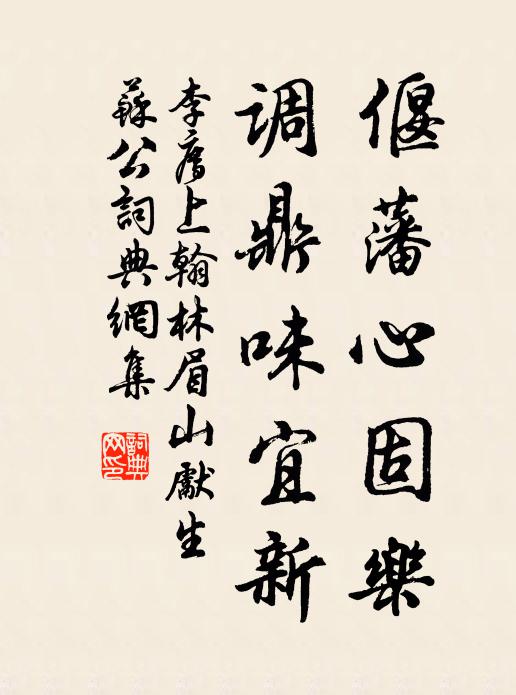 偃藩心固樂
调鼎味宜新
李廌上翰林眉山獻生
蘇公詞典網集
詞典网印